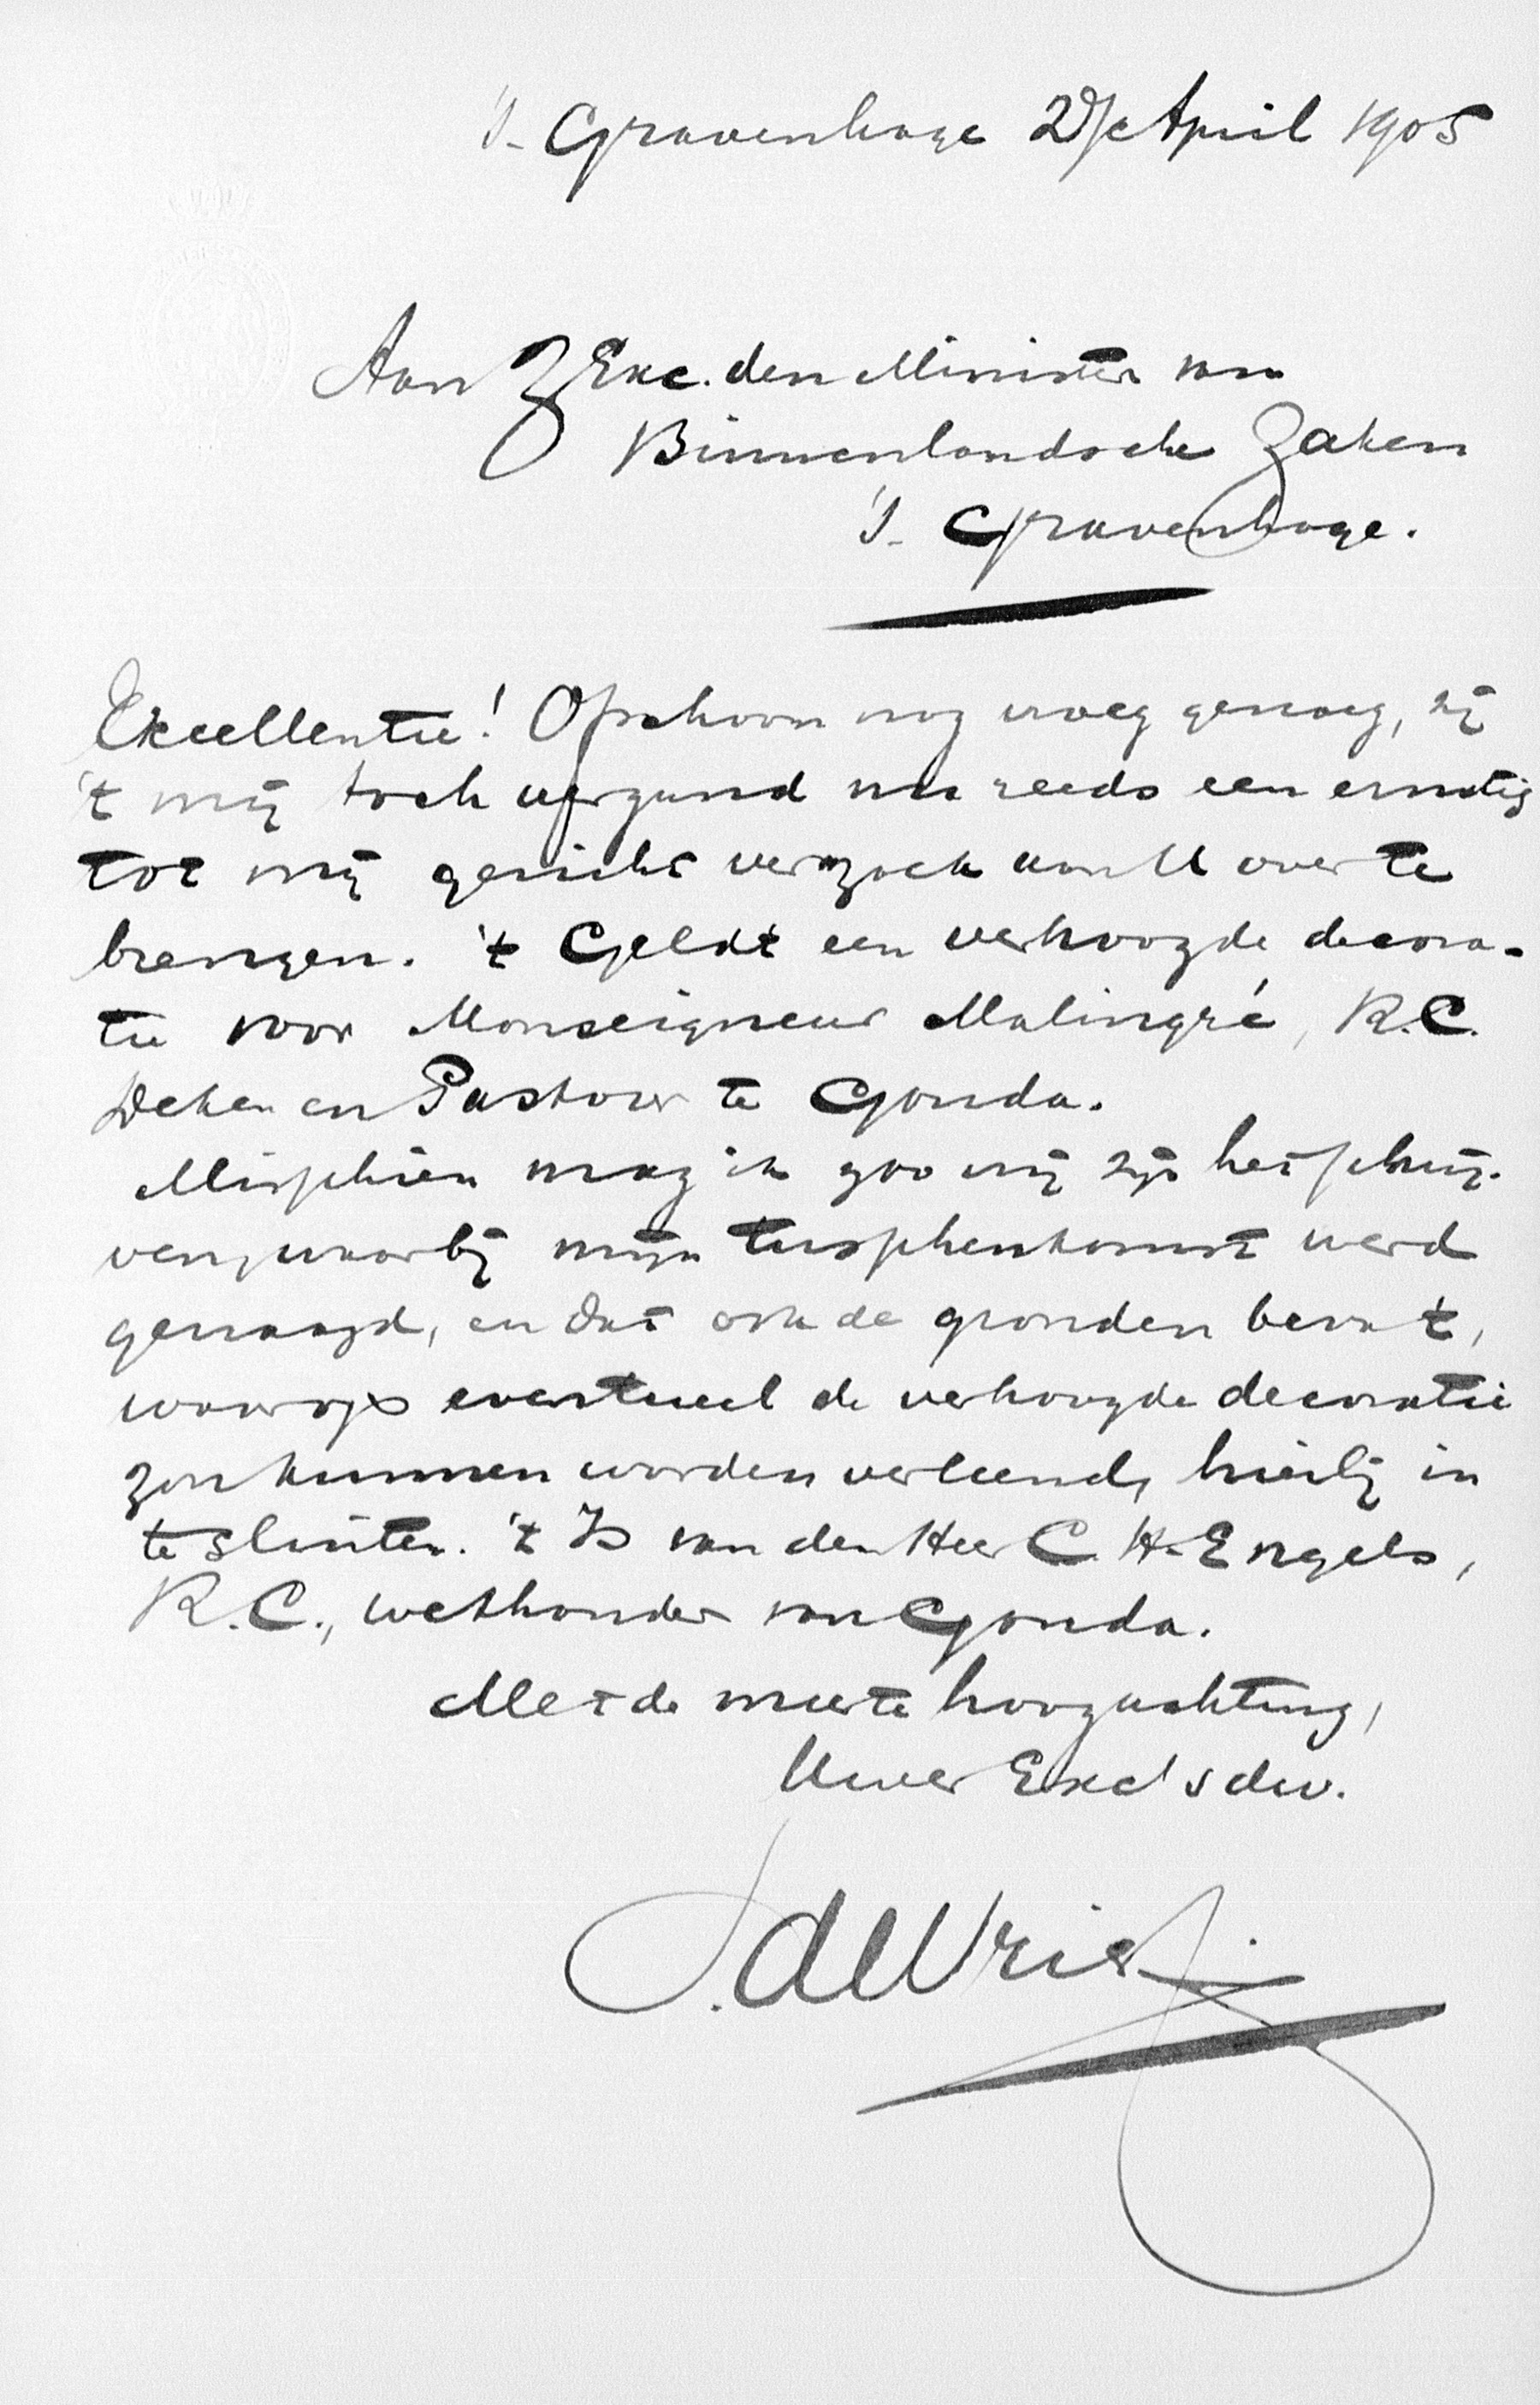 's-Gravenhage April 1905
Aan ZExc. den Minister van
Binnenlandsche Zaken
's-Gravenhage.
Excellentie! Ofschoon nog vroeg genoeg, zij
't mij toch vergund nu reeds een ernstig
tot mij gericht verzoek aan U over te
brengen. 't Geldt een verhoogde decora-
tie voor Monseigneur Malingré, R.C.
Deken en Pastoor te Gouda.
Misschien mag ik zoo vrij zijn het schrij-
ven, waarbij mijn tusschenkomst werd
gevraagd, en dat ook de gronden bevat,
waarop eventueel de verhoogde decoratie
zou kunnen worden verleend, hierbij in
te sluiten. 't Is van den Heer C. H. Engels,
R.C., wethouder van Gouda.
Met de meeste hoogachting,
Uwer Exc's dw.